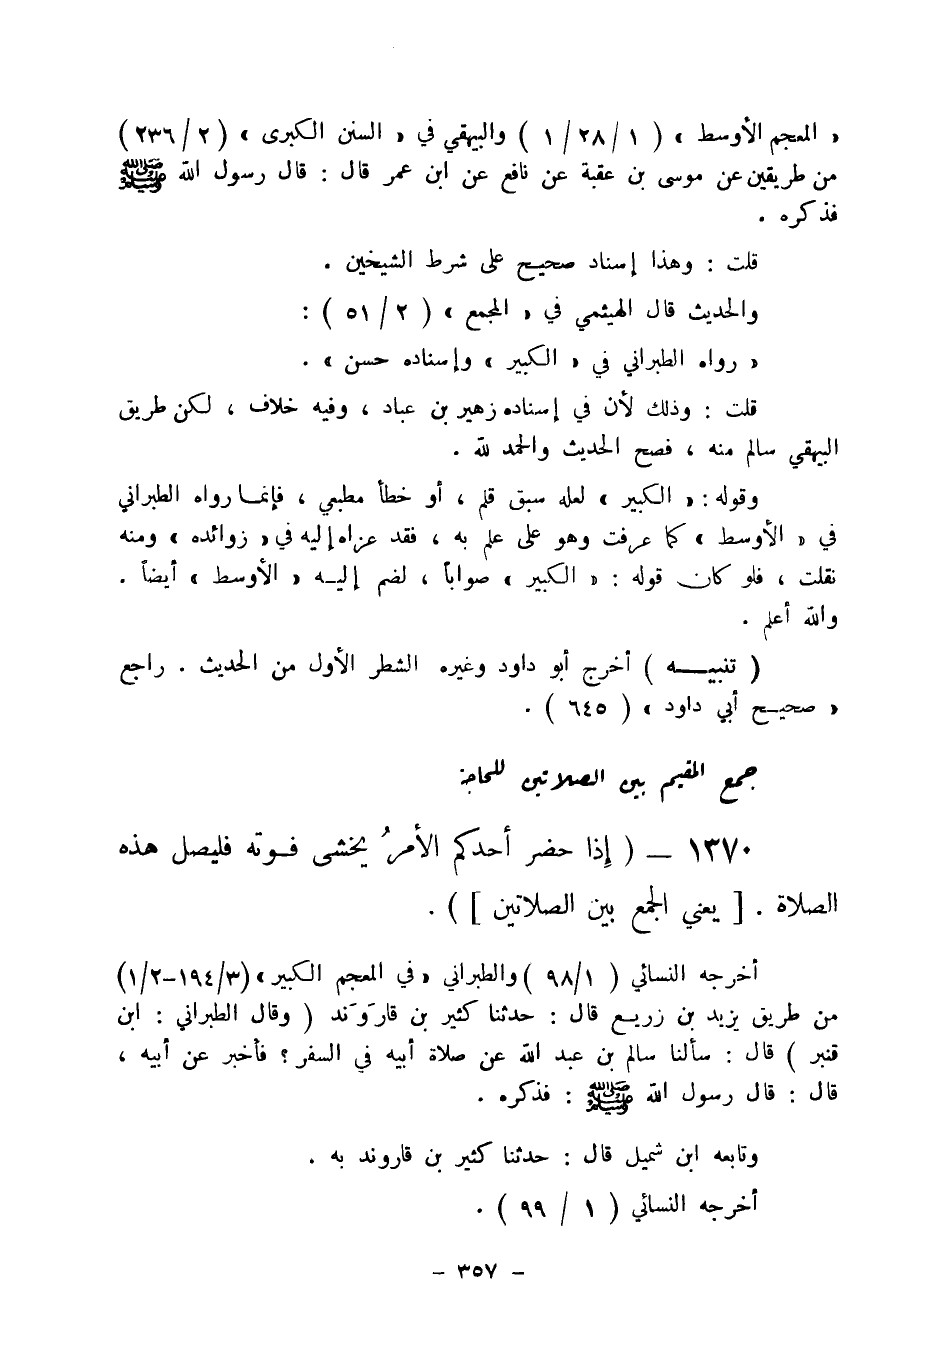 « المعجم الأوسط » ( ١ / ٢٨ / ١ ) والبيهقي في « السنن الكبرى » ( ٢ / ٢٣٦ )
من طريقين عن موسى بن عقبة عن نافع عن ابن عمر قال : قال رسول الله ﷺ
فذكره .
قلت : وهذا إسناد صحيح على شرط الشيخين .
والحديث قال الهيثمي في « المجمع » ( ٢ / ٥١ ) :
« رواه الطبراني في « الكبير » وإسناده حسن » .
قلت : وذلك لأن في إسناده زهير بن عباد ، وفيه خلاف ، لكن طريق
البيهقي سالم منه ، فصح الحديث والحمد لله .
وقوله : « الكبير » لعله سبق قلم ، أو خطأ مطبعي ، فإنما رواه الطبراني
في « الأوسط » كما عرفت وهو على علم به ، فقد عزاه إليه في « زوائده » ومنه
نقلت ، فلو كان قوله : « الكبير » صواباً ، لضم إليه « الأوسط » أيضاً .
والله أعلم .
( تنبيه ) أخرج أبو داود وغيره الشطر الأول من الحديث . راجع
« صحيح أبي داود » ( ٦٤٥ ) .
جمع المقيم بين الصلاتين للحاجة
١٣٧٠ – ( إذا حضر أحدكم الأمرُ يخشى فوته فليصل هذه
الصلاة . [ يعني الجمع بين الصلاتين ] ) .
أخرجه النسائي ( ١ / ٩٨ ) والطبراني « في المعجم الكبير » (٣/١٩٤-١/٢)
من طريق يزيد بن زريع قال : حدثنا كثير بن قارَوَند ( وقال الطبراني : ابن
قنبر ) قال : سألنا سالم بن عبد الله عن صلاة أبيه في السفر ؟ فأخبر عن أبيه ،
قال : قال رسول الله ﷺ : فذكره .
وتابعه ابن شميل قال : حدثنا كثير بن قاروند به .
أخرجه النسائي ( ١ / ٩٩ ) .
- ٣٥٧ -